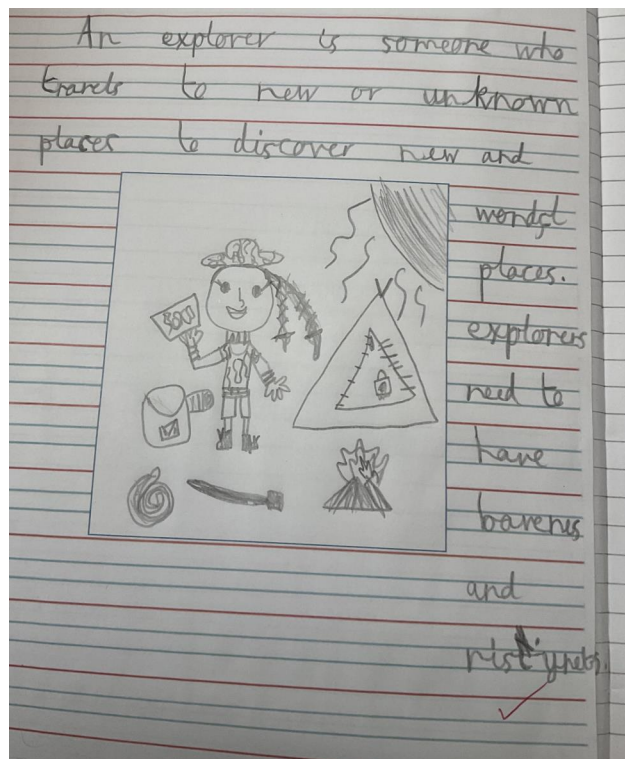 An explorer is someone who
travels to new or unknown
places to discover new and
places.
explorers
need to
have
and